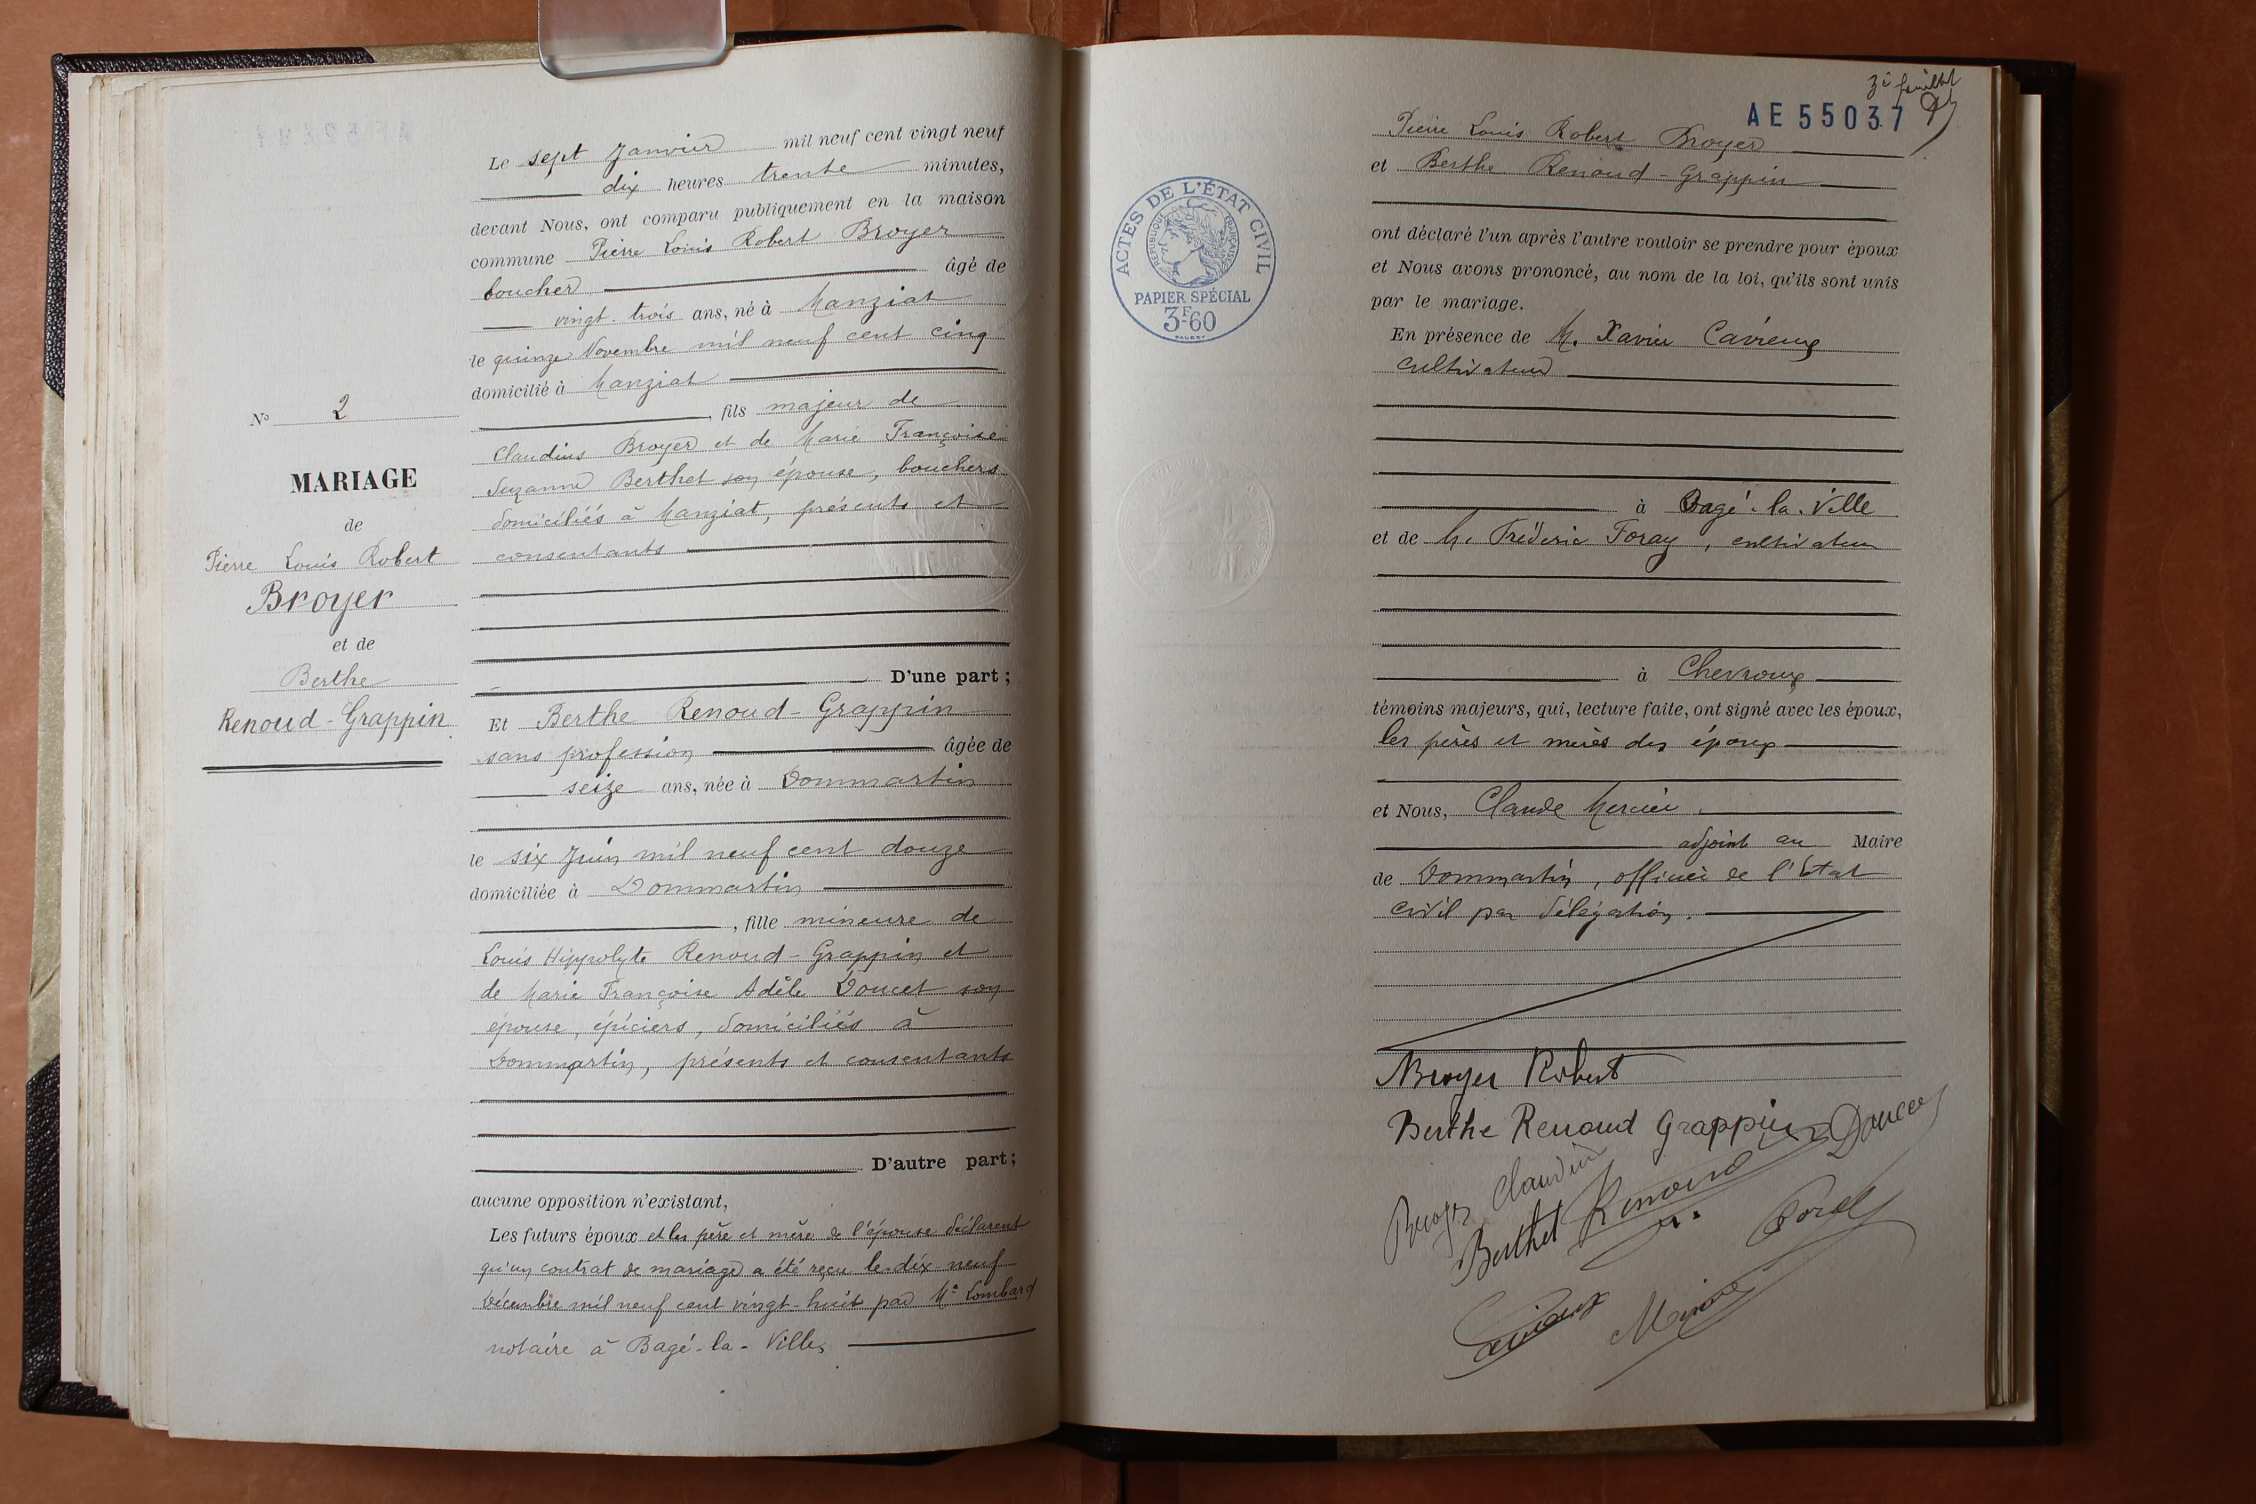 N° 2
MARIAGE
de
Pierre Louis Robert
Broyer
et de
Berthe
Renoud-Grappin
Le sept Janvier mil neuf cent vingt neuf
dix heures trente minutes,
devant Nous, ont comparu publiquement en la maison
commune Pierre Louis Robert Broyer
boucher âgé de
vingt-trois ans, né à Manziat
le quinze Novembre mil neuf cent cinq
domicilié à Manziat
, fils majeur de
Claudius Broyer et de Marie Françoise
Suzanne Berthet son épouse, bouchers
domiciliés à Manziat, présents et
consentants
D'une part ;
Et Berthe Renoud-Grappin
sans profession âgée de
seize ans, née à Dommartin
le six Juin mil neuf cent douze
domiciliée à Dommartin
, fille mineure de
Louis Hippolyte Renoud-Grappin et
de Marie Françoise Adèle Doucet son
épouse, épiciers, domiciliés à
Dommartin, présents et consentants
D'autre part ;
aucune opposition n'existant,
Les futurs époux et les père et mère de l'épouse déclarent
qu'un contrat de mariage a été reçu le dix neuf
Décembre mil neuf cent vingt-huit par Me Lombard
notaire à Bagé-la-Ville
3e feuillet
AE 55037
ACTES DE L'ÉTAT CIVIL
RÉPUBLIQUE FRANÇAISE
PAPIER SPÉCIAL
3F60
Pierre Louis Robert Broyer
et Berthe Renoud-Grappin
ont déclaré l'un après l'autre vouloir se prendre pour époux
et Nous avons prononcé, au nom de la loi, qu'ils sont unis
par le mariage.
En présence de M. Xavier Cavieux
cultivateur
à Bagé-la-Ville
et de M. Frédéric Foray, cultivateur
à Chevroux
témoins majeurs, qui, lecture faite, ont signé avec les époux,
les pères et mères des époux
et Nous, Claude Mercier
adjoint au Maire
de Dommartin, officier de l'Etat
civil par délégation.
Broyer Robert
Berthe Renoud Grappin Doucet
Broyer Claudius
Berthet Renoud
Foray
Cavieux